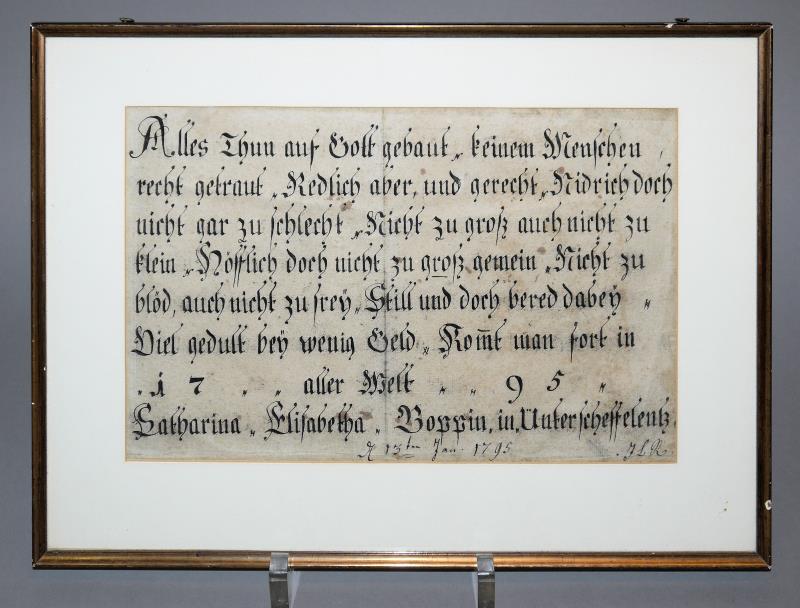 Alles Thun auf Gott gebaut „ keinem Menschen
recht getraut „ Redlich aber, und gerecht „ Nidrich doch
nicht gar zu schlecht „ Nicht zu groß auch nicht zu
klein „ Höfflich doch nicht zu groß gemein „ Nicht zu
blöd, auch nicht zu frey „ Still und doch bered dabey „
Viel gedult bey wenig Geld „ Kom̄t man fort in
„ 17 „ „ aller Welt „ „ 95 „
Catharina „ Elisabetha „ Boppin, in Unterscheffelentz.
d 13ten Jan. 1795 . JLR.